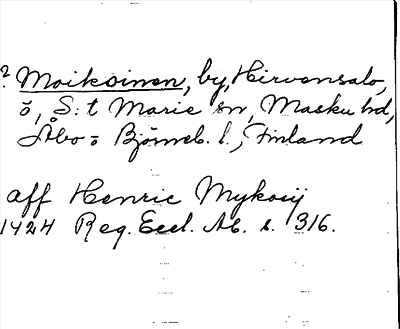 ? Moikoinen, by, Hirvensalo,
ö, S:t Marie sn, Masku hd,
Åbo o Björneb. l., Finland
aff Henric Mykoij
1424 Reg. Eccl. Ab. s. 316.